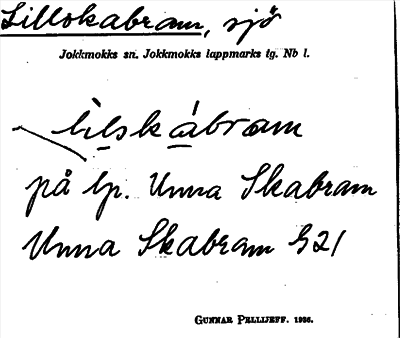 Lillskabram, sjö
Jokkmokks sn. Jokkmokks lappmarks tg. Nb l.
lilskábram
på lp. Unna Skabram
Unna Skabram S21
GUNNAR PELLIJEFF. 1956.